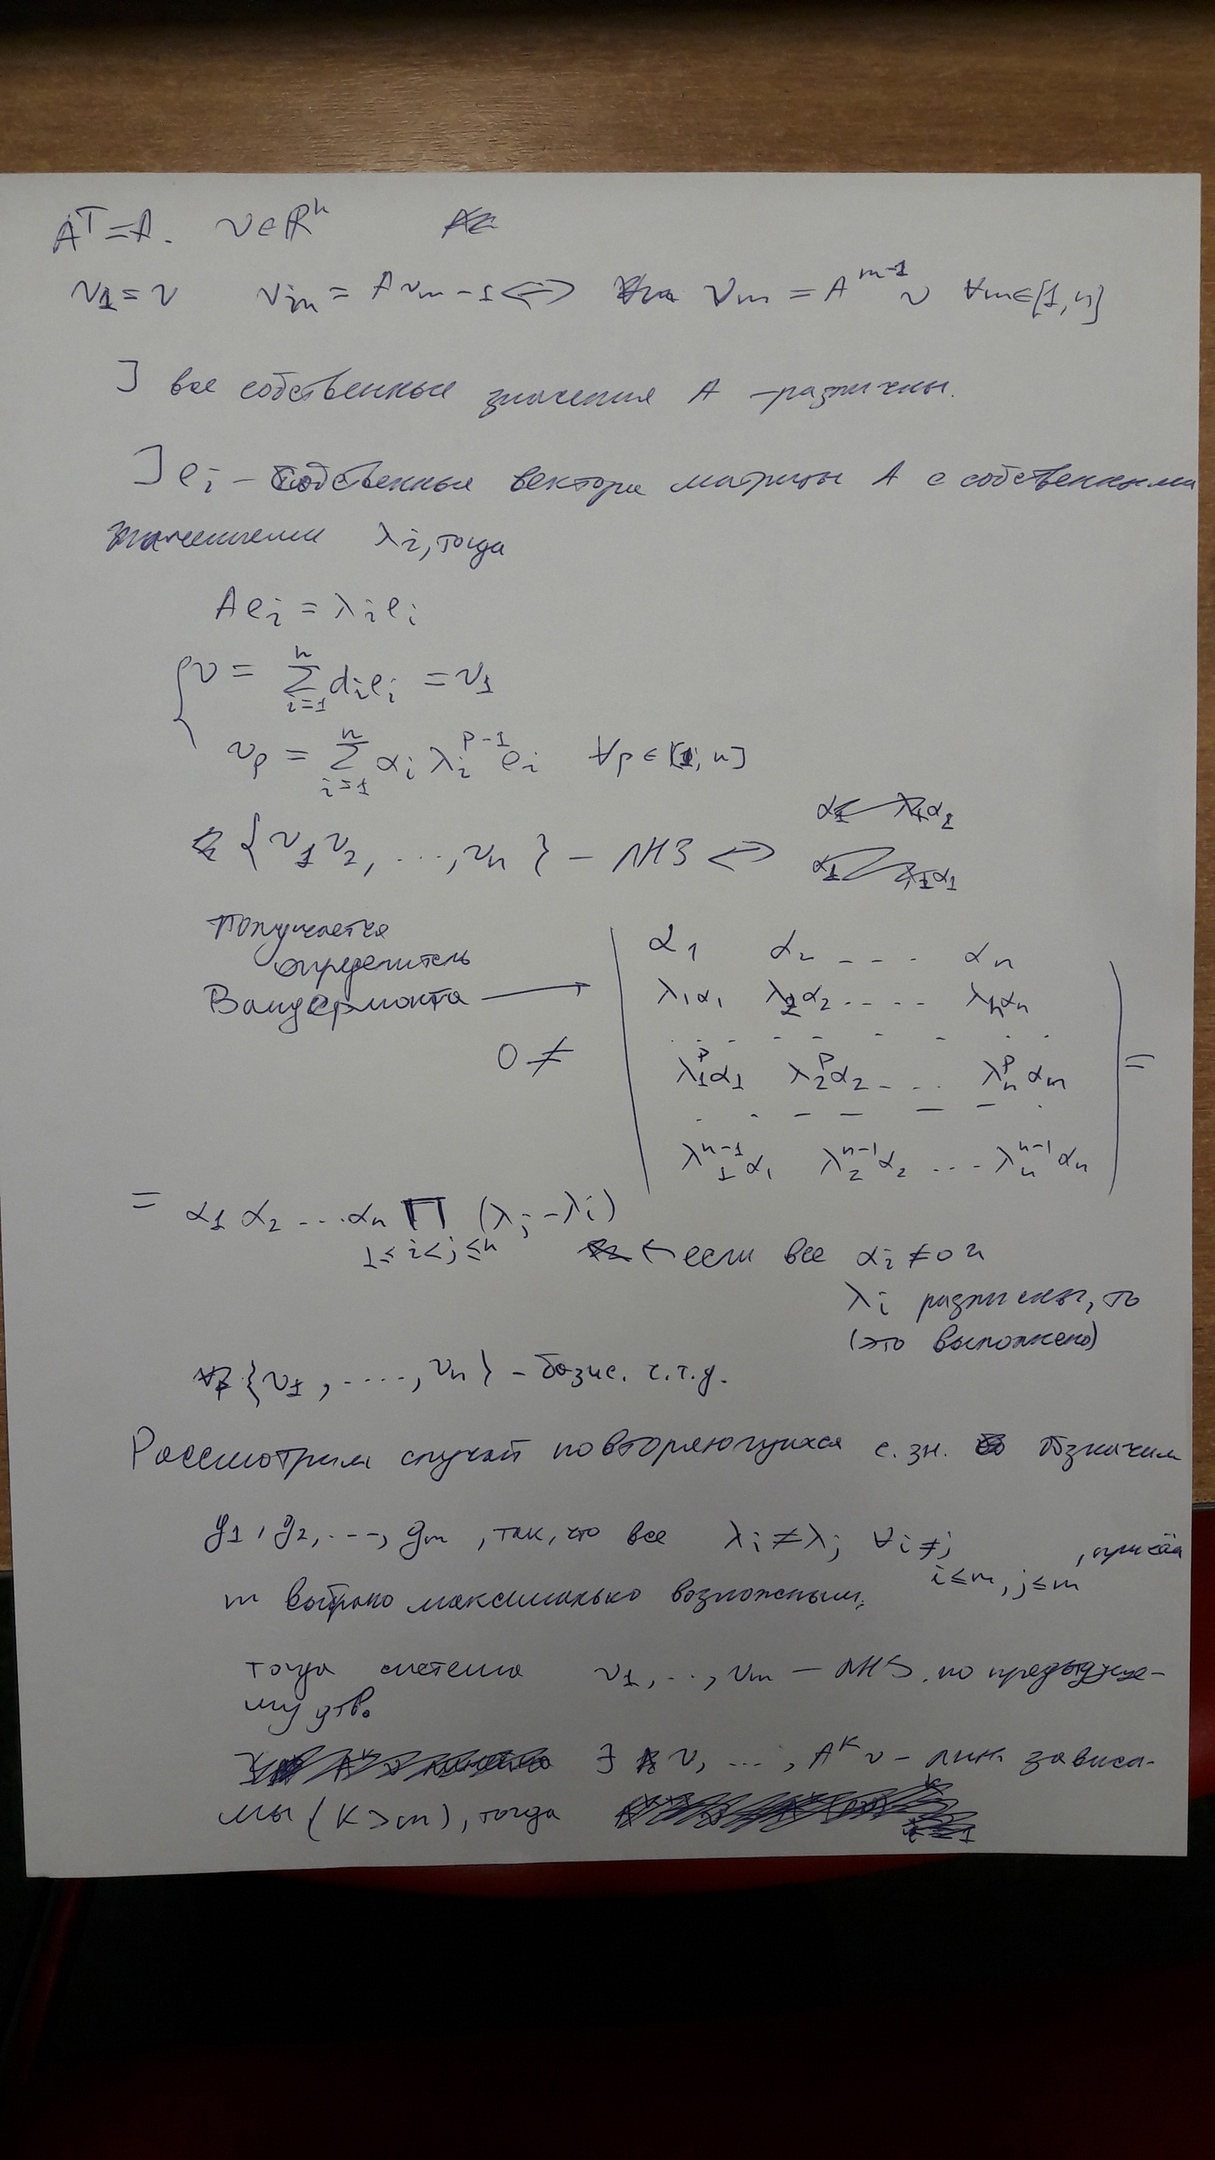 Aᵀ=A. v∈ℝⁿ
v₁=v vₘ = Avₘ₋₁ <=> vₘ = Aᵐ⁻¹v ∀m∈[1,n]
] все собственные значения A – различны.
] eᵢ – собственные вектора матрицы A с собственными
значениями λᵢ, тогда
Aeᵢ = λᵢeᵢ
{ v = ∑ⁿᵢ₌₁ αᵢeᵢ = v₁
vₚ = ∑ⁿᵢ₌₁ αᵢ λᵢᵖ⁻¹ eᵢ ∀p∈[1, n]
{v₁ v₂, ..., vₙ} – ЛНЗ <=>
Получается
определитель
Вандермонта →
0 ≠
| α₁ α₂ --- . αₙ |
λ₁α₁ λ₂α₂ ..... λₙαₙ
λ₁ᵖα₁ λ₂ᵖα₂ -. . . λₙᵖαₙ =
λ₁ⁿ⁻¹α₁ λ₂ⁿ⁻¹α₂ ... λₙⁿ⁻¹αₙ
= α₁ α₂ ... αₙ ∏ (λⱼ-λᵢ)
1≤i<j≤n ← если все αᵢ ≠0 и
λᵢ различны, то
(это выполнено)
{v₁, ...., vₙ} – базис. ч.т.д.
Рассмотрим случай повторяющихся с. зн. обозначим
g₁, g₂, ..., gₘ, так, что все λᵢ≠λⱼ ∀i≠j , причём
i≤m, j≤m
m выбрано максимально возможным.
тогда система v₁, .., vₘ – ЛНЗ. по предыдуще-
му утв.
] v, ..., Aᵏv – лин. зависи-
мы (k>m), тогда